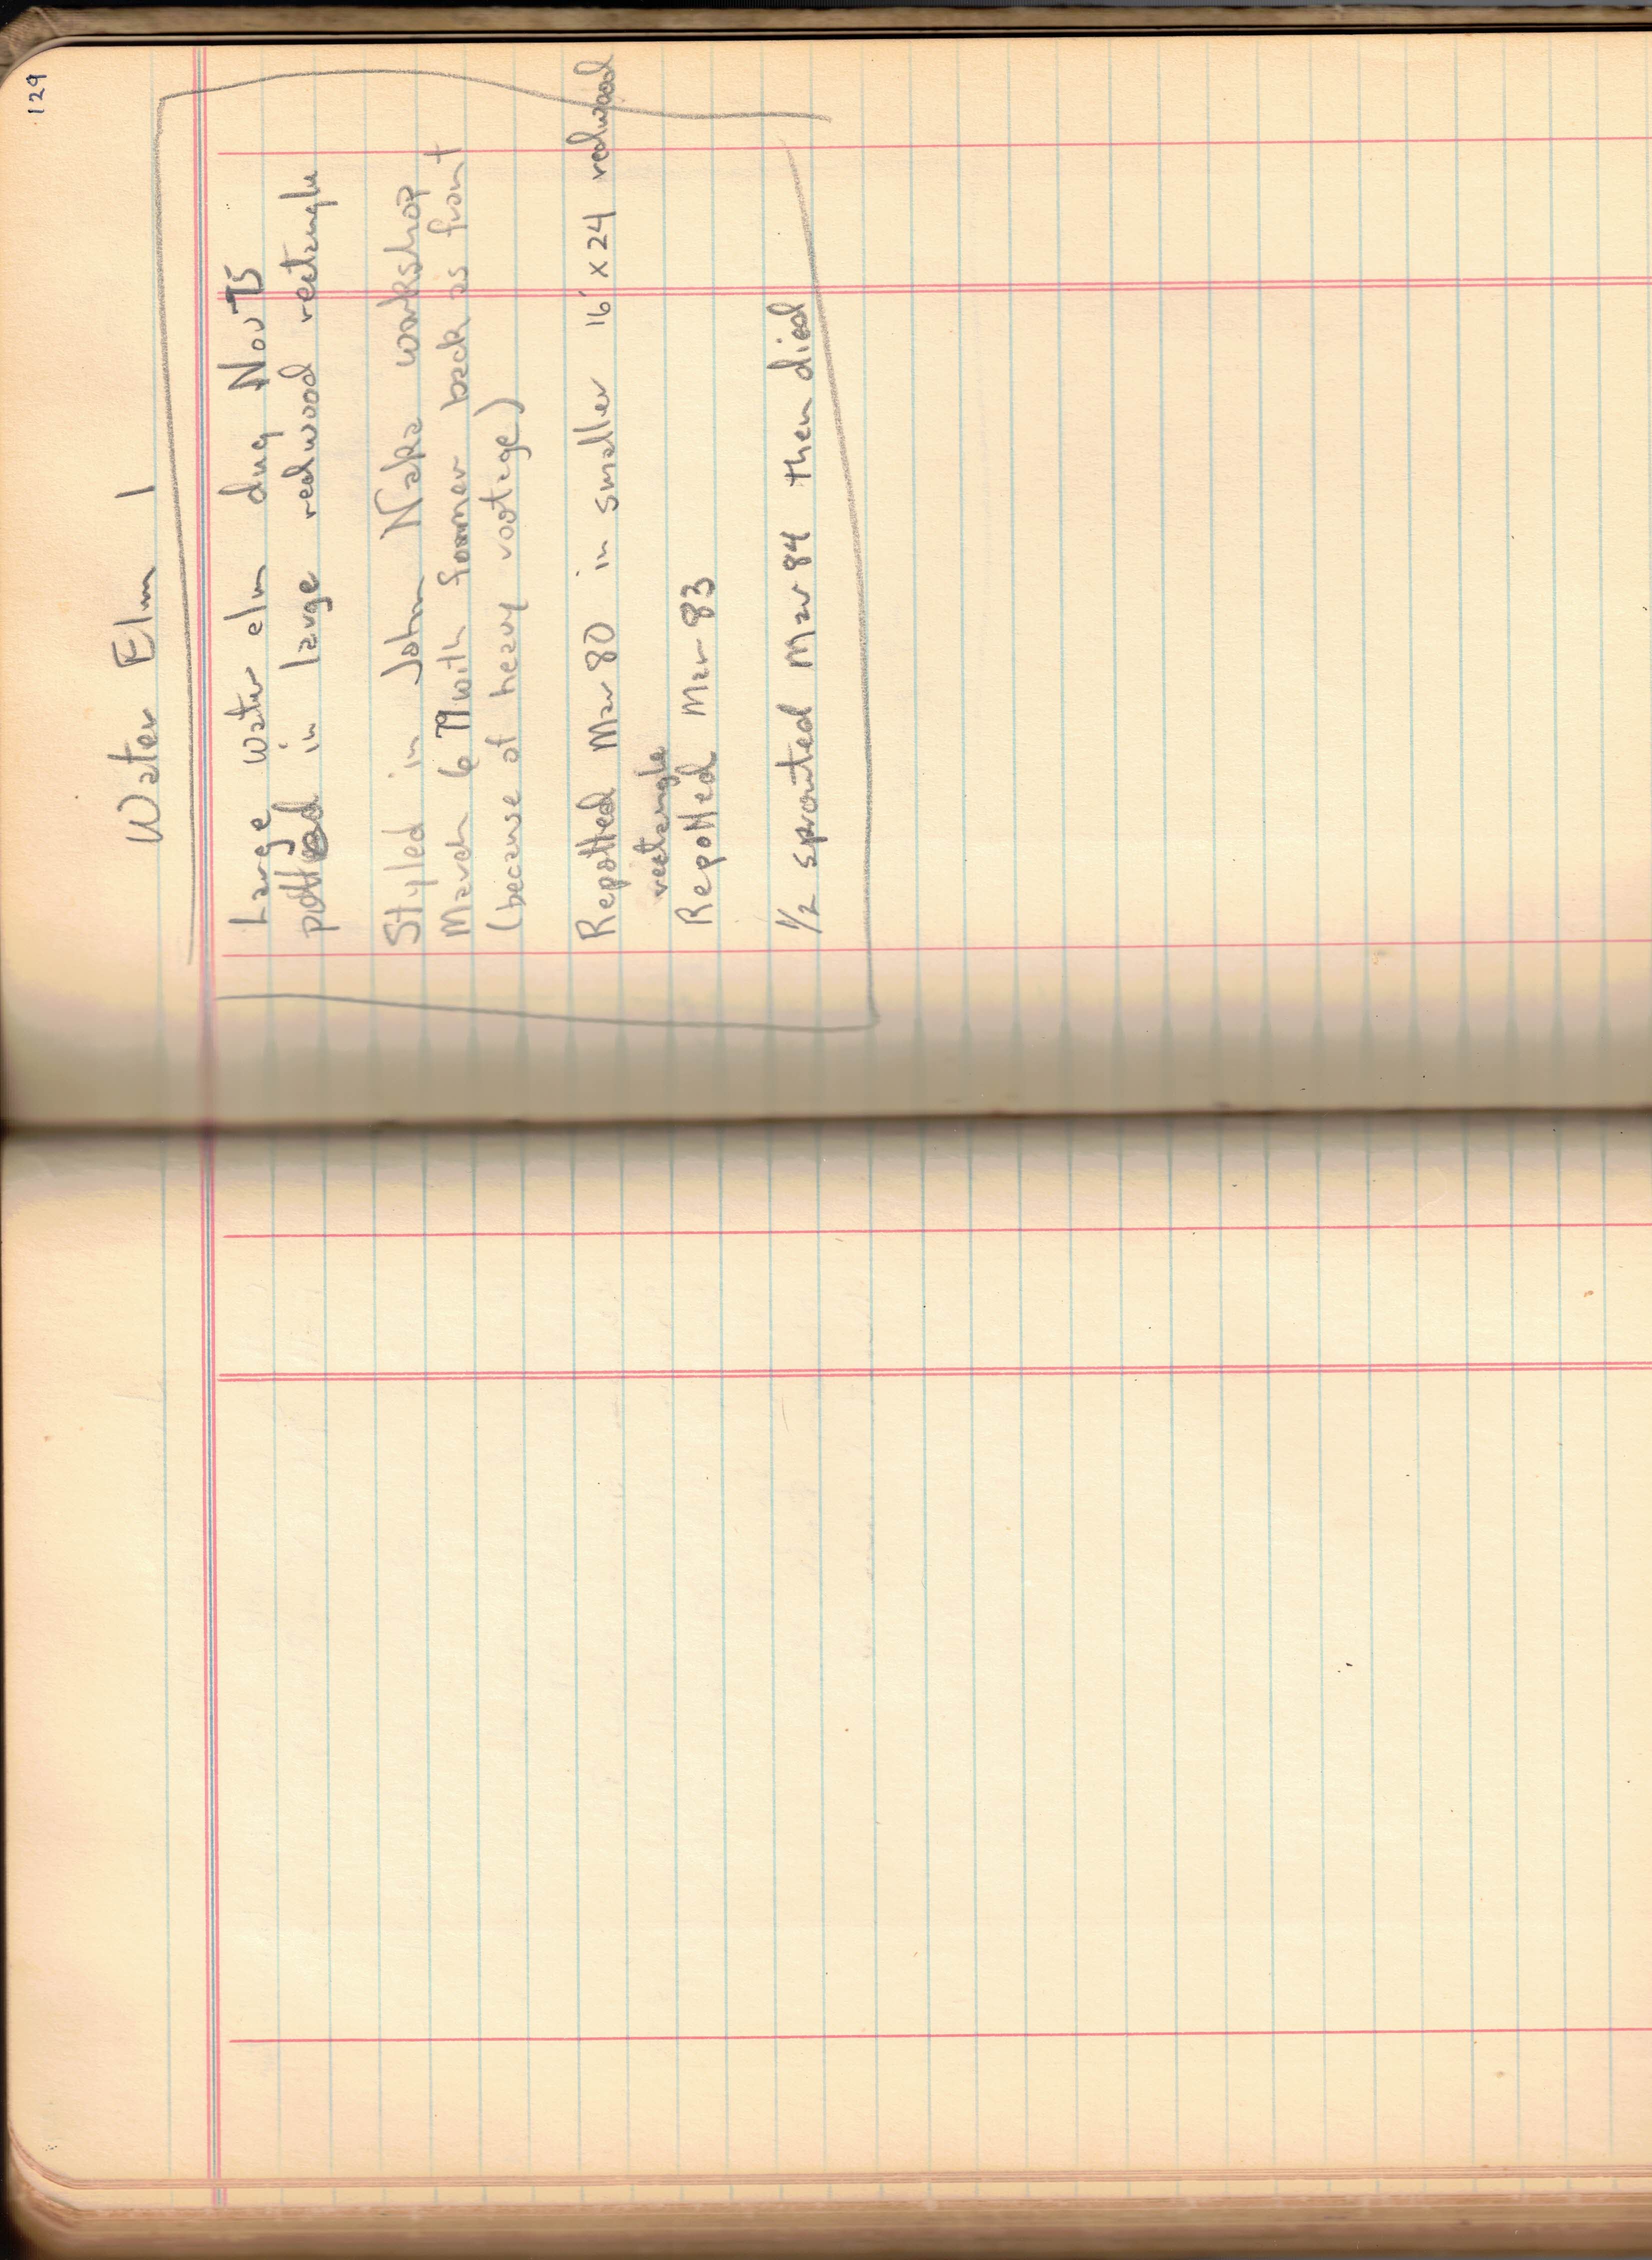 129
Water Elm 1
Large water elm dug Nov 75
potted in large redwood rectangle
Styled in John Naka workshop
March 6 79 with former back as front
(because of heavy rootage)
Repotted Mar 80 in smaller 16 x 24 redwood
rectangle
Repotted Mar 83
1/2 sprouted Mar 84 then died